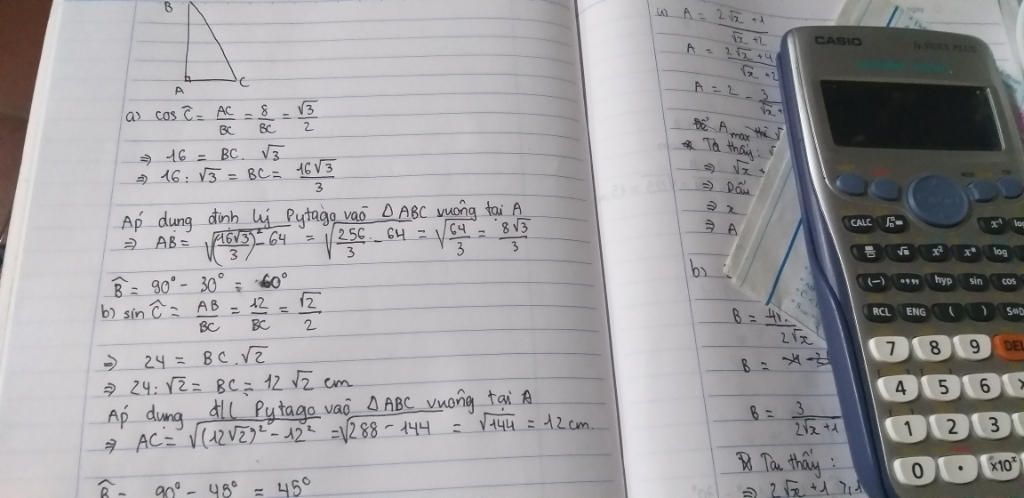 B
A
C
a) cos Ĉ = AC/BC = 8/BC = √3/2
⇒ 16 = BC . √3
⇒ 16 : √3 = BC = 16√3/3
Áp dụng định lý Pytago vào △ABC vuông tại A
⇒ AB = √((16√3/3)² - 64) = √(256/3 - 64) = √(64/3) = 8√3/3
B̂ = 90° - 30° = 60°
b) sin Ĉ = AB/BC = 12/BC = √2/2
⇒ 24 = BC . √2
⇒ 24 : √2 = BC = 12√2 cm
Áp dụng đlí Pytago vào △ABC vuông tại A
⇒ AC = √((12√2)² - 12²) = √(288 - 144) = √144 = 12 cm.
B̂ = 90° - 45° = 45°
a) A = 2√x + 1 / √x + 2
A = 2√x + 4
√x + 2
A = 2 - 3
√x +
Để A max thì
Ta thấy :
⇒ √x +
⇒ Dấu
⇒ x
⇒ A
b)
B = 4
2√x
B =
B = 3 / 2√x + 1
Ta thấy :
⇒ 2√x + 1 ≥ 1
CASIO
CALC
x⁻¹
√
x²
log
(−)
hyp
sin
cos
RCL
ENG
(
)
S⇔D
7 8 9 DEL
4 5 6
1 2 3
0 . ×10ˣ